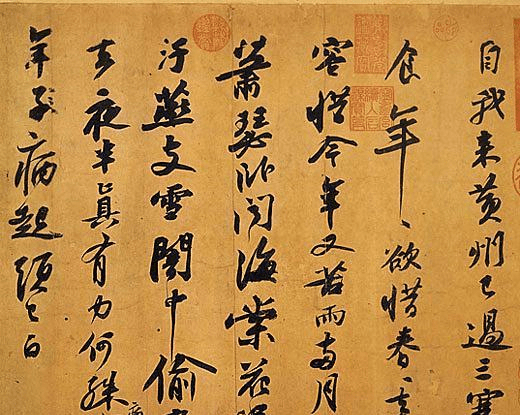 自我来黄州已過三寒
食年〻欲惜春〻去
容惜今年又苦雨兩月
蕭瑟卧聞海棠花
汙燕支雪闇中偷
去夜半真有力何殊
年子病起頭已白